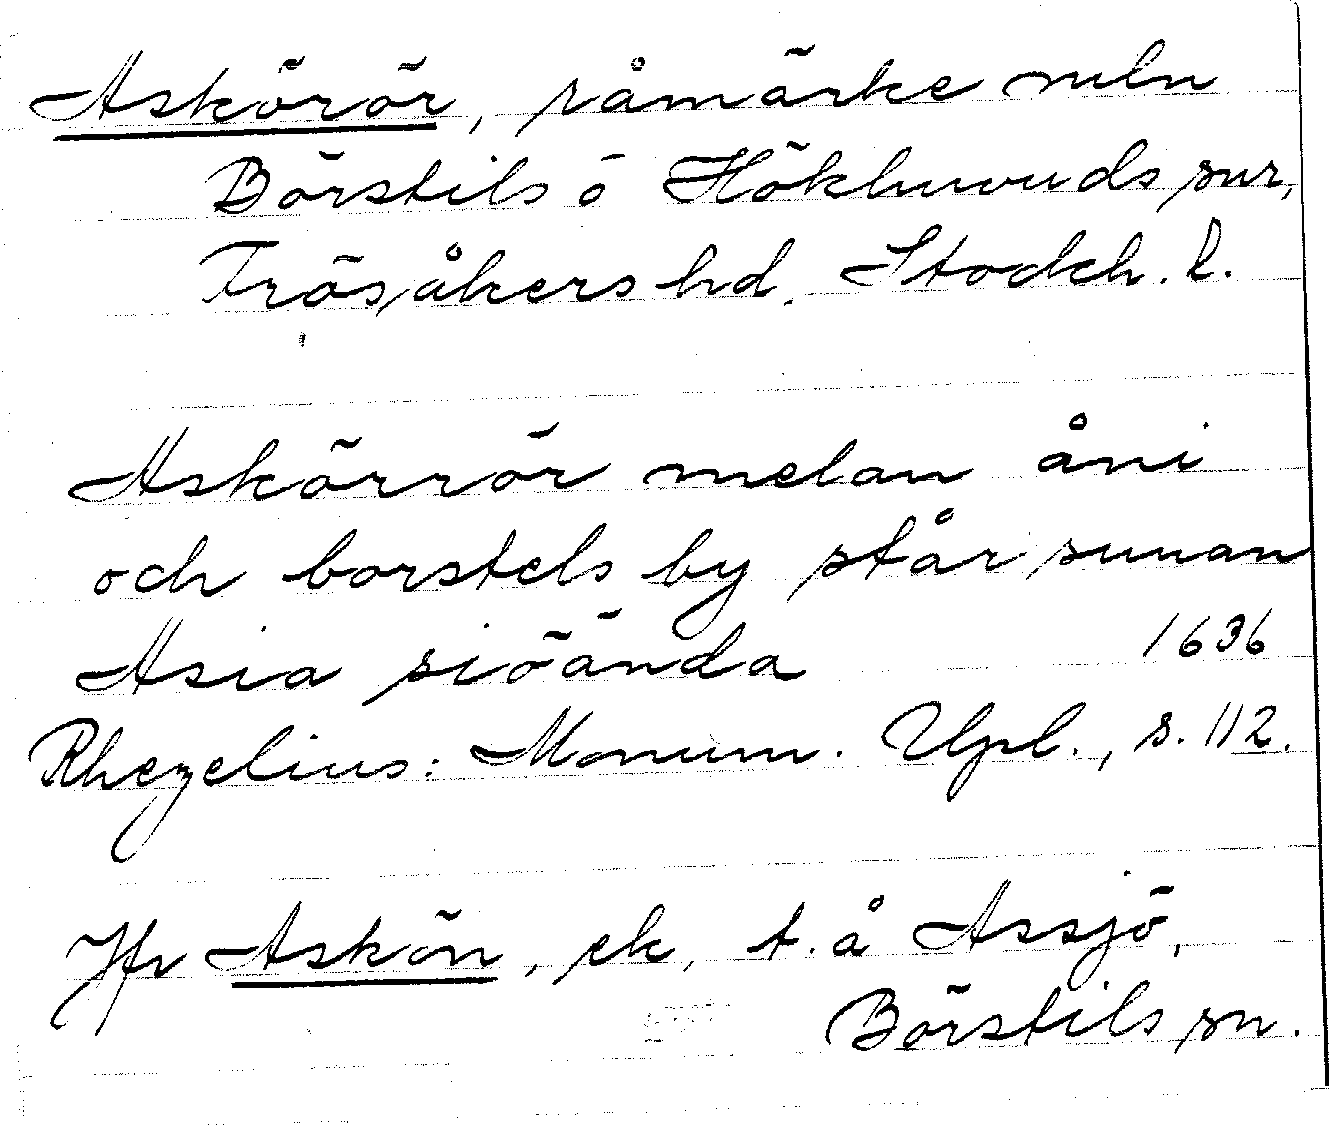 Askörör, råmärke mln
Börstils o Hökhuvuds snr,
Frösåkers hd. Stockh. l.
Askörrör melan åni
och borstels by står sunan
Asia siöända 1636
Rhezelius: Monum. Upl., s. 112.
Jfr Askön, ek, t. å Assjö,
Börstils sn.